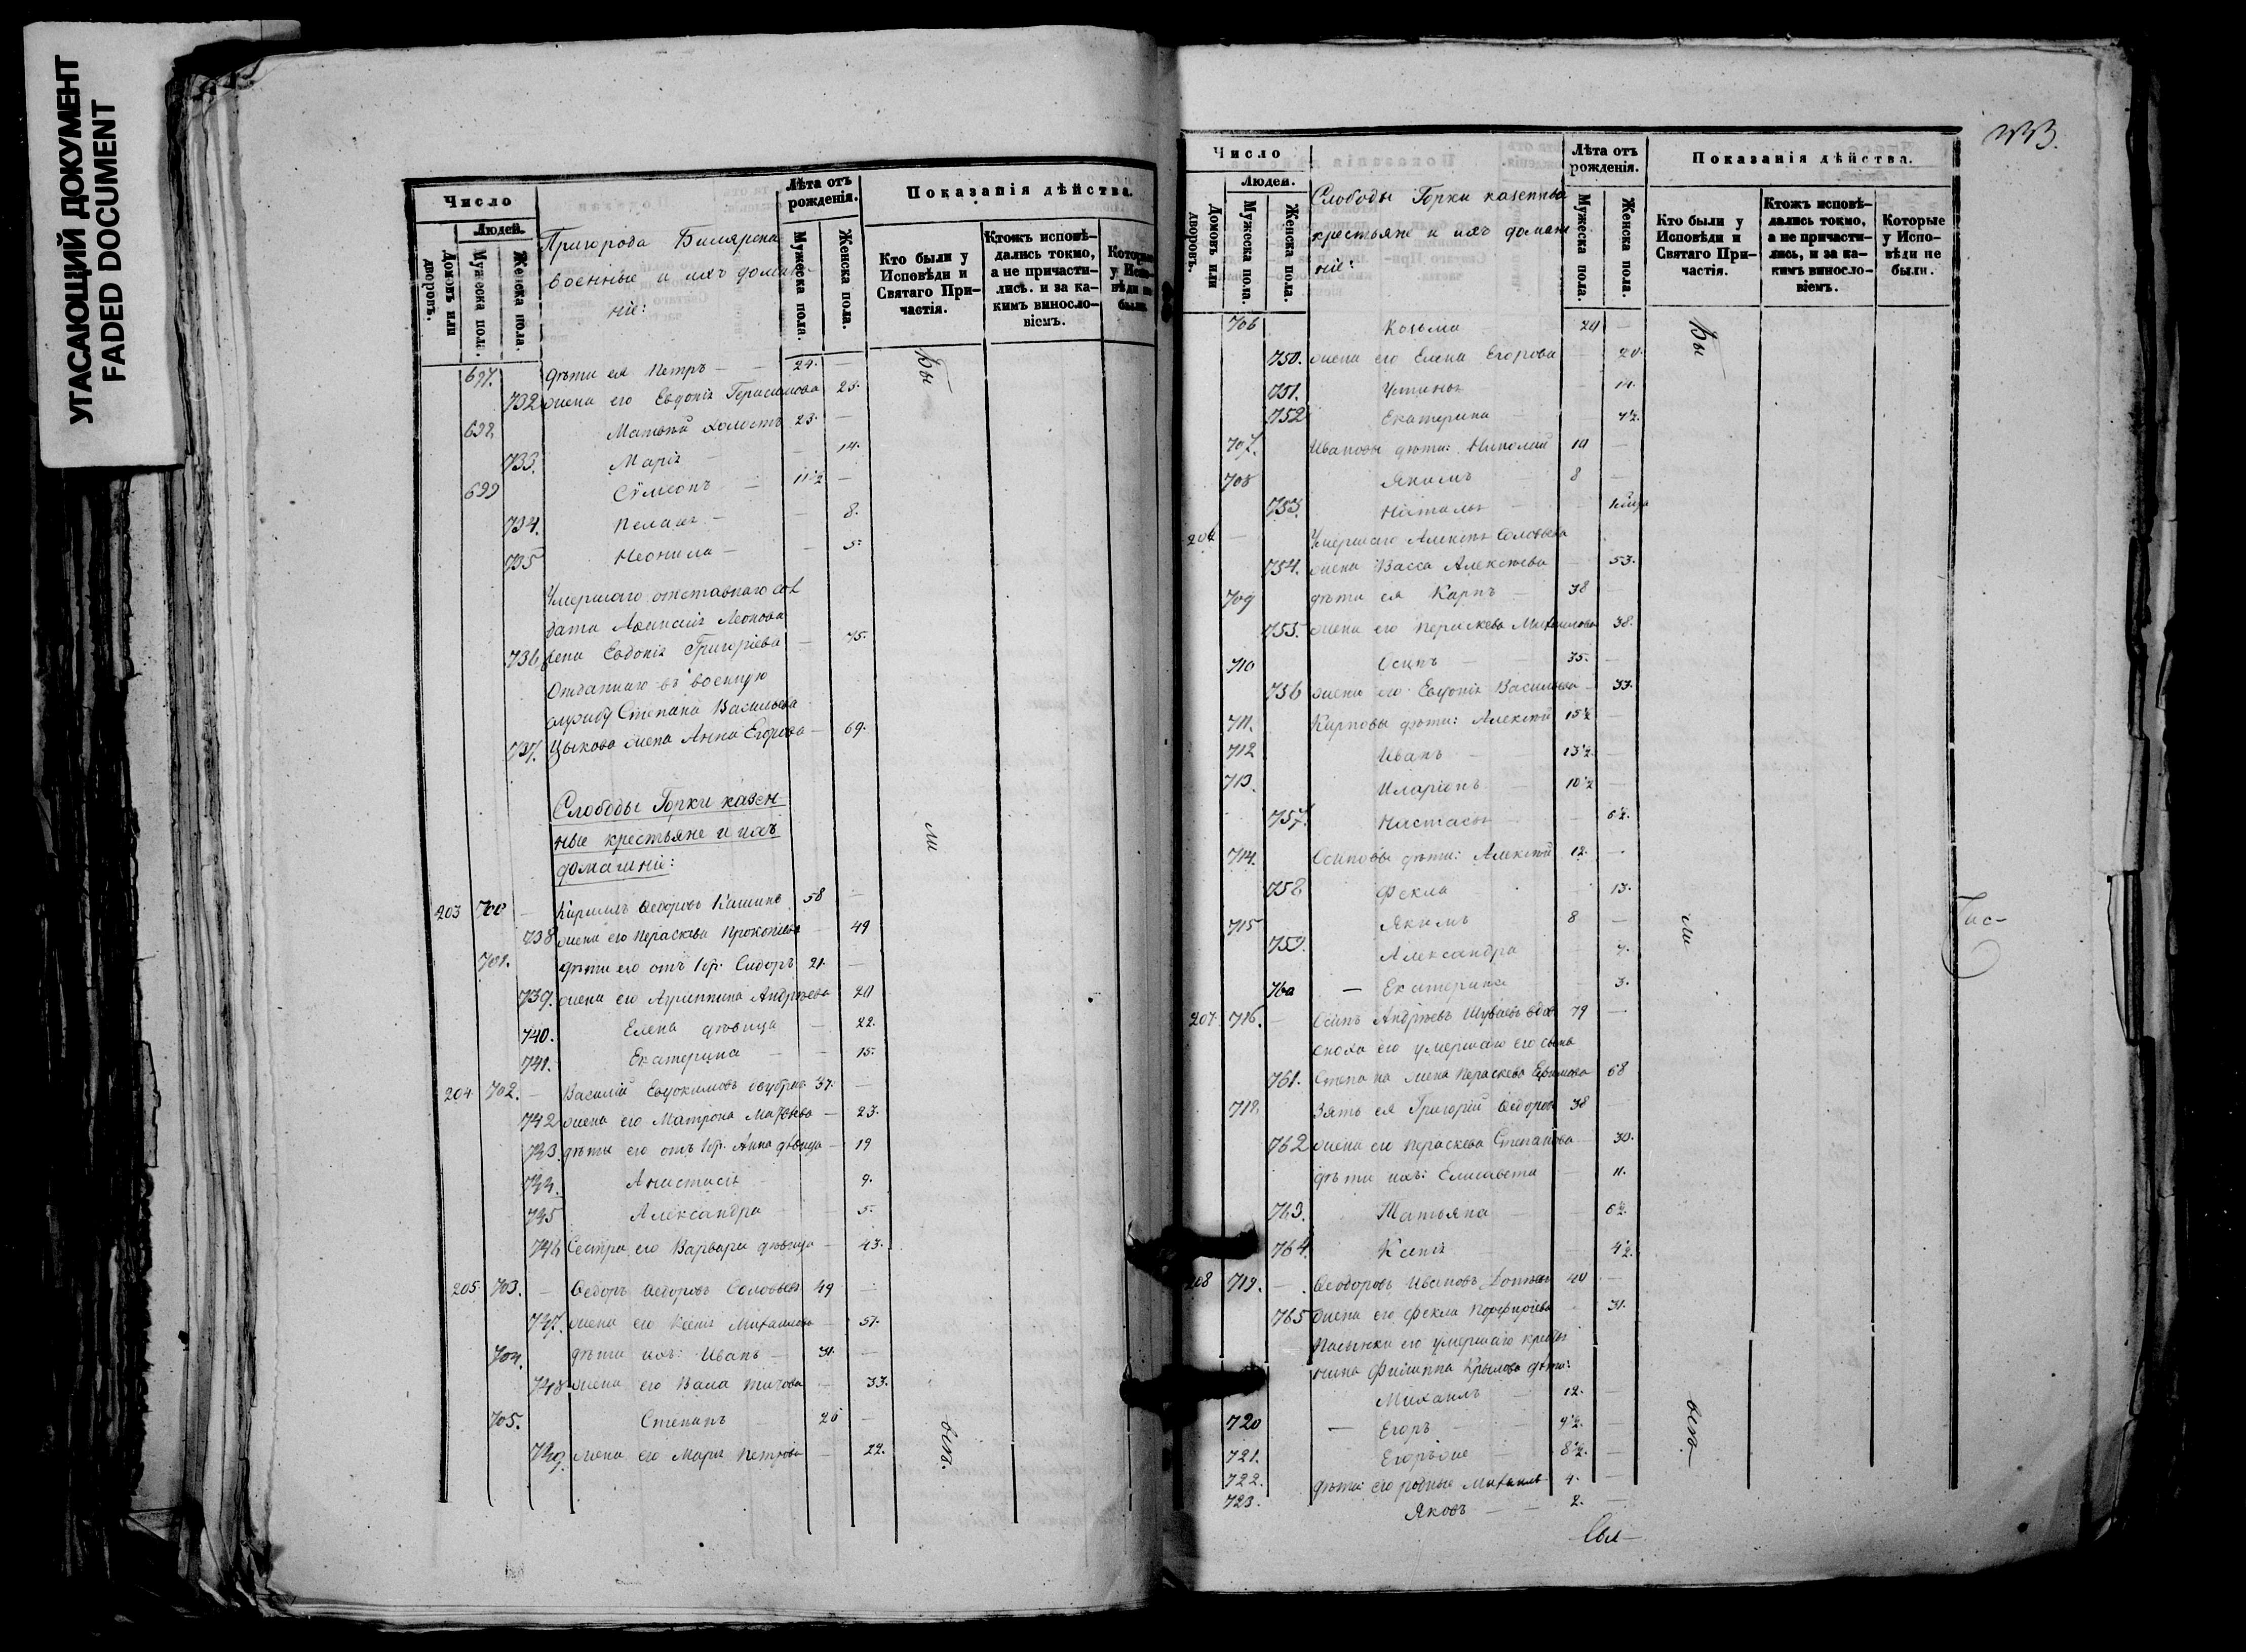 УГАСАЮЩИЙ ДОКУМЕНТ
FADED DOCUMENT
Число
Людей.
Домовъ или дворовъ.
Мужеска пола.
Женска пола.
Пригорода Билярска
военные и ихъ домаш-
ніе:
Лѣта отъ рожденія.
Мужеска пола.
Женска пола.
Показанія дѣйства.
Кто были у Исповѣди и Святаго При-частія.
Ктожъ исповѣ-дались токмо, а не причасти-лись. и за ка-кимъ виносло-віемъ.
Которые у Испо-вѣди не были.
697. дѣти ея Петръ — 24. —
732 жена его Евдокія Герасимова 25.
698. Матвѣй холостъ 23. —
733. Марія — 14.
699 Сѵмеонъ — 11½ —
734. Пелагія — 8.
735 Неонила — 5.
Умершаго отставнаго сол
дата Леонова
736 жена Евдокія Григорьева — 75.
Отданнаго въ военную
службу Степана Васильева
737. Цыкова жена Анна Егорова — 69.
Слободы Горки казен-
ные крестьяне и ихъ
домашніе:
203 700 — Кирилъ Ѳедоровъ Кашинъ 58 —
738 жена его Параскева Прокопьева — 49
701. дѣти его отъ 1 бр. Сидоръ 21. —
739. жена его Агриппина Андреева 20
740. Елена дѣвица — 22.
741. Екатерина — 15.
204. 702. — Василій Евдокимовъ 37. —
742 жена его Матрона Матвѣева — 23.
743. дѣти его отъ 1 бр. Анна дѣвица — 19
744. Анастасія — 9.
745 Александра — 5.
746 Сестра его Варвара дѣвица — 43.
205. 703. — Ѳедоръ Ѳедоровъ Соловьевъ 49 —
747. жена его Ксенія Михайлова — 51.
704. дѣти ихъ: Иванъ — 31. —
748 жена его Титова — 33.
705. Степанъ 26 —
749. жена его Марія Петрова — 22.
Бы
ли
всѣ.
333.
Число
Людей.
Домовъ или дворовъ.
Мужеска пола.
Женска пола.
Слободы Горки казенные
крестьяне и ихъ домаш
ніе:
Лѣта отъ рожденія.
Мужеска пола.
Женска пола.
Показанія дѣйства.
Кто были у Исповѣди и Святаго При-частія.
Ктожъ исповѣ-дались токмо, а не причасти-лись, и за ка-кимъ винослo-віемъ.
Которые у Испо-вѣди не были.
706 Козьма —
750. жена его Елена Егорова — 20.
751. Устинья
752 Екатерина
707. Ивановы дѣти: Николай 10 —
708 Якимъ 8 —
753. Наталья —
206 — Умершаго Алексѣя Соловьева
754. жена Васса Алексѣева — 53.
709 дѣти ея Карпъ — 38 —
755. жена его Параскева Михаилова 38.
710 Осипъ — 35. —
756 жена его Евдокія Васильева — 33.
711. Карповы дѣти: Алексѣй 15½ —
712 Иванъ — 13½ —
713. Иларіонъ — 10½ —
757. Настасья — 6½.
714. Осиповы дѣти: Алексѣй 12. —
758 Ѳекла — 13.
715 Якимъ 8 —
759. Александра
760 — Екатерина 3.
207 716. — Осипъ Андреевъ Шуваевъ вдов 79 —
сноха его умершаго его сына
761. Степана жена Параскева Ефимова 68
718. Зять ея Григорій Ѳедоровъ 38 —
762 жена его Параскева Степанова — 30.
дѣти ихъ: Елисавета — 11.
763. Татьяна — 6½.
764. Ксенія 4½.
208 719. — Ѳеодоръ Ивановъ 40 —
765 жена его Ѳекла Порфирьева — 31.
Пасынки его умершаго крестья
нина Филиппа Крылова дѣти:
Михаилъ — 12. —
720 — Егоръ — 9½. —
721. Егоръ — 8½. —
722. дѣти его родные Михаилъ 4. —
723. Яковъ — 2. —
Бы
ли
всѣ.